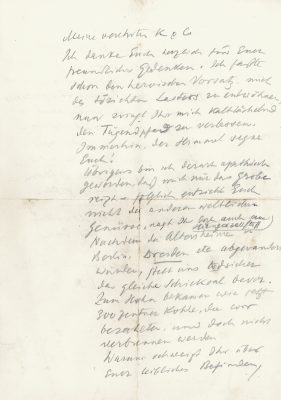 Meine verehrten K & Co
Ich danke Euch herzlich für Euer
freundliches Gedenken. Ich faßte
schon den heroischen Vorsatz, mich
des törichten Lasters zu entwöhnen,
nun zwingt Ihr mich kaltlächelnd
den Tugendpfad zu verlassen.
Immerhin, der Himmel segne
Euch!
Übrigens bin ich derart apathisch
geworden, daß mich nur das Grobe
reizt – folglich entzieht Euch
nicht der anderen weltlichen
Genüsse, sagt Ihr
Nachdem die Altersheime
Berlin, Dresden etc abgewandert
wurden, steht uns todsicher
das gleiche Schicksal bevor.
Zum Hohn bekamen wir jetzt
300 Zentner Kohle, die wir
bezahlten, und doch nicht
verbrennen werden
Warum schweigt Ihr über
Euer leibliches Befinden,